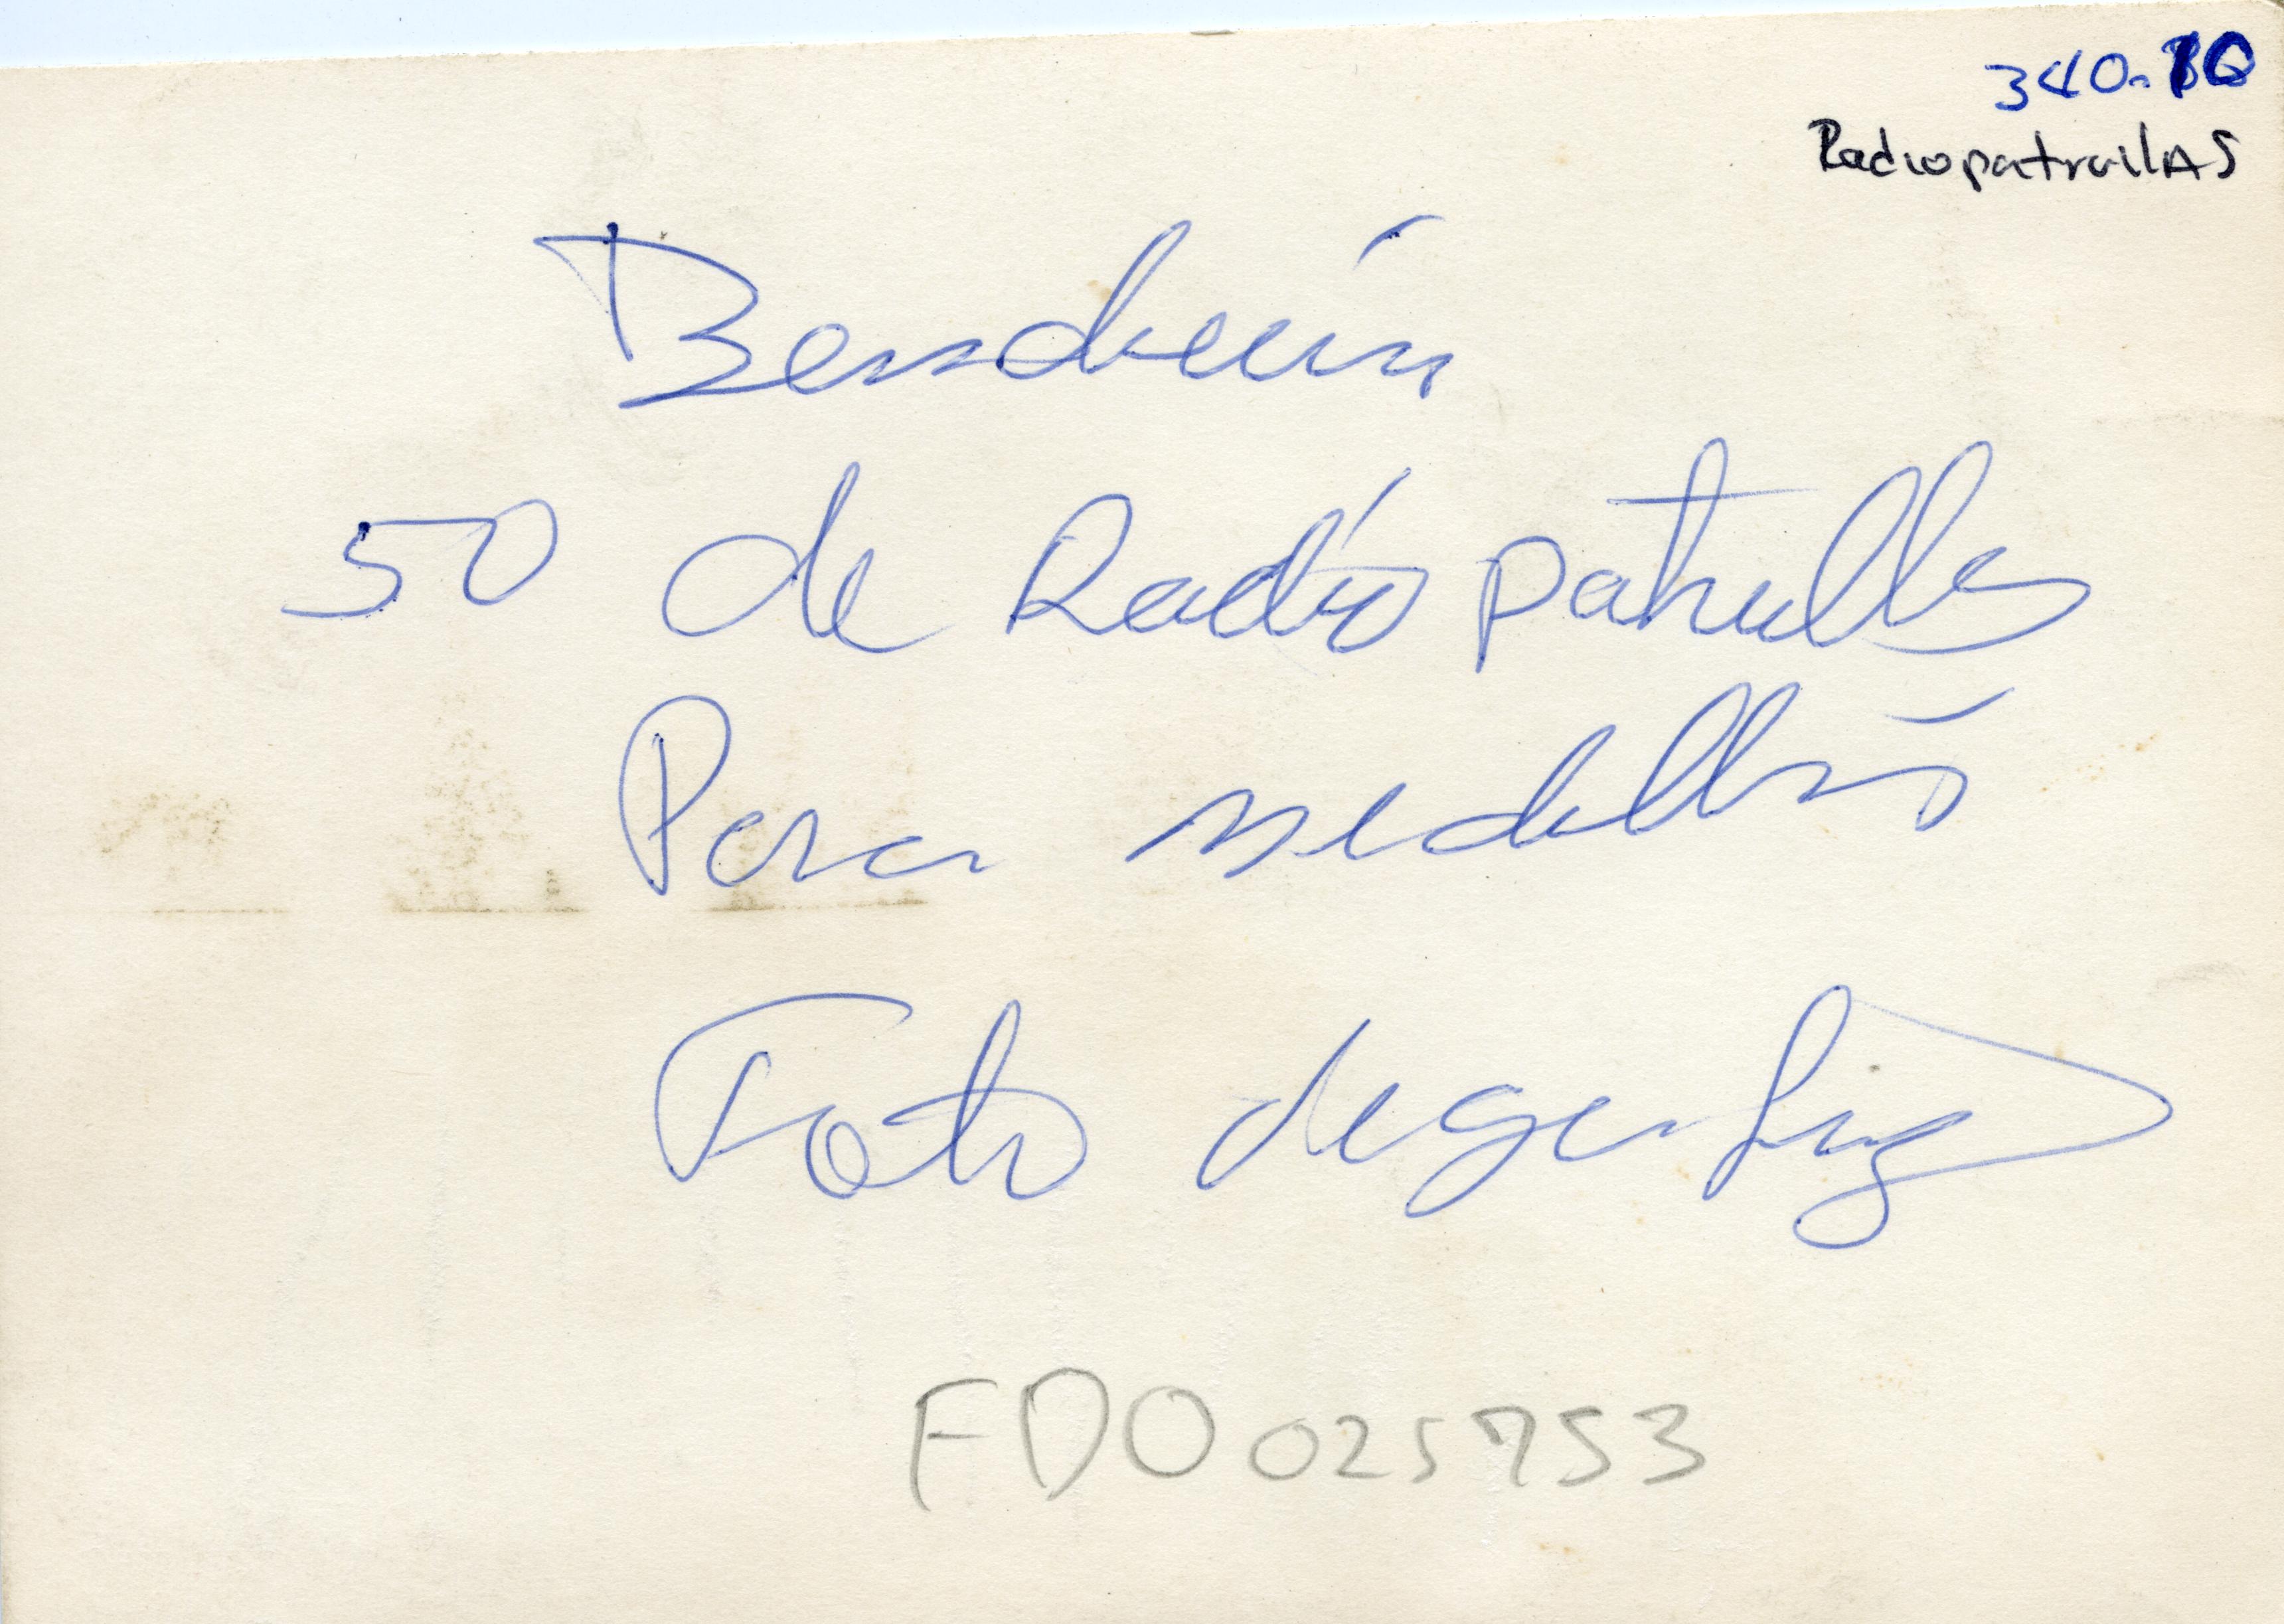 340-10
Radiopatrullas
Bendición
50 de Radio patrullas
Para medellín
Foto
FDO 025753